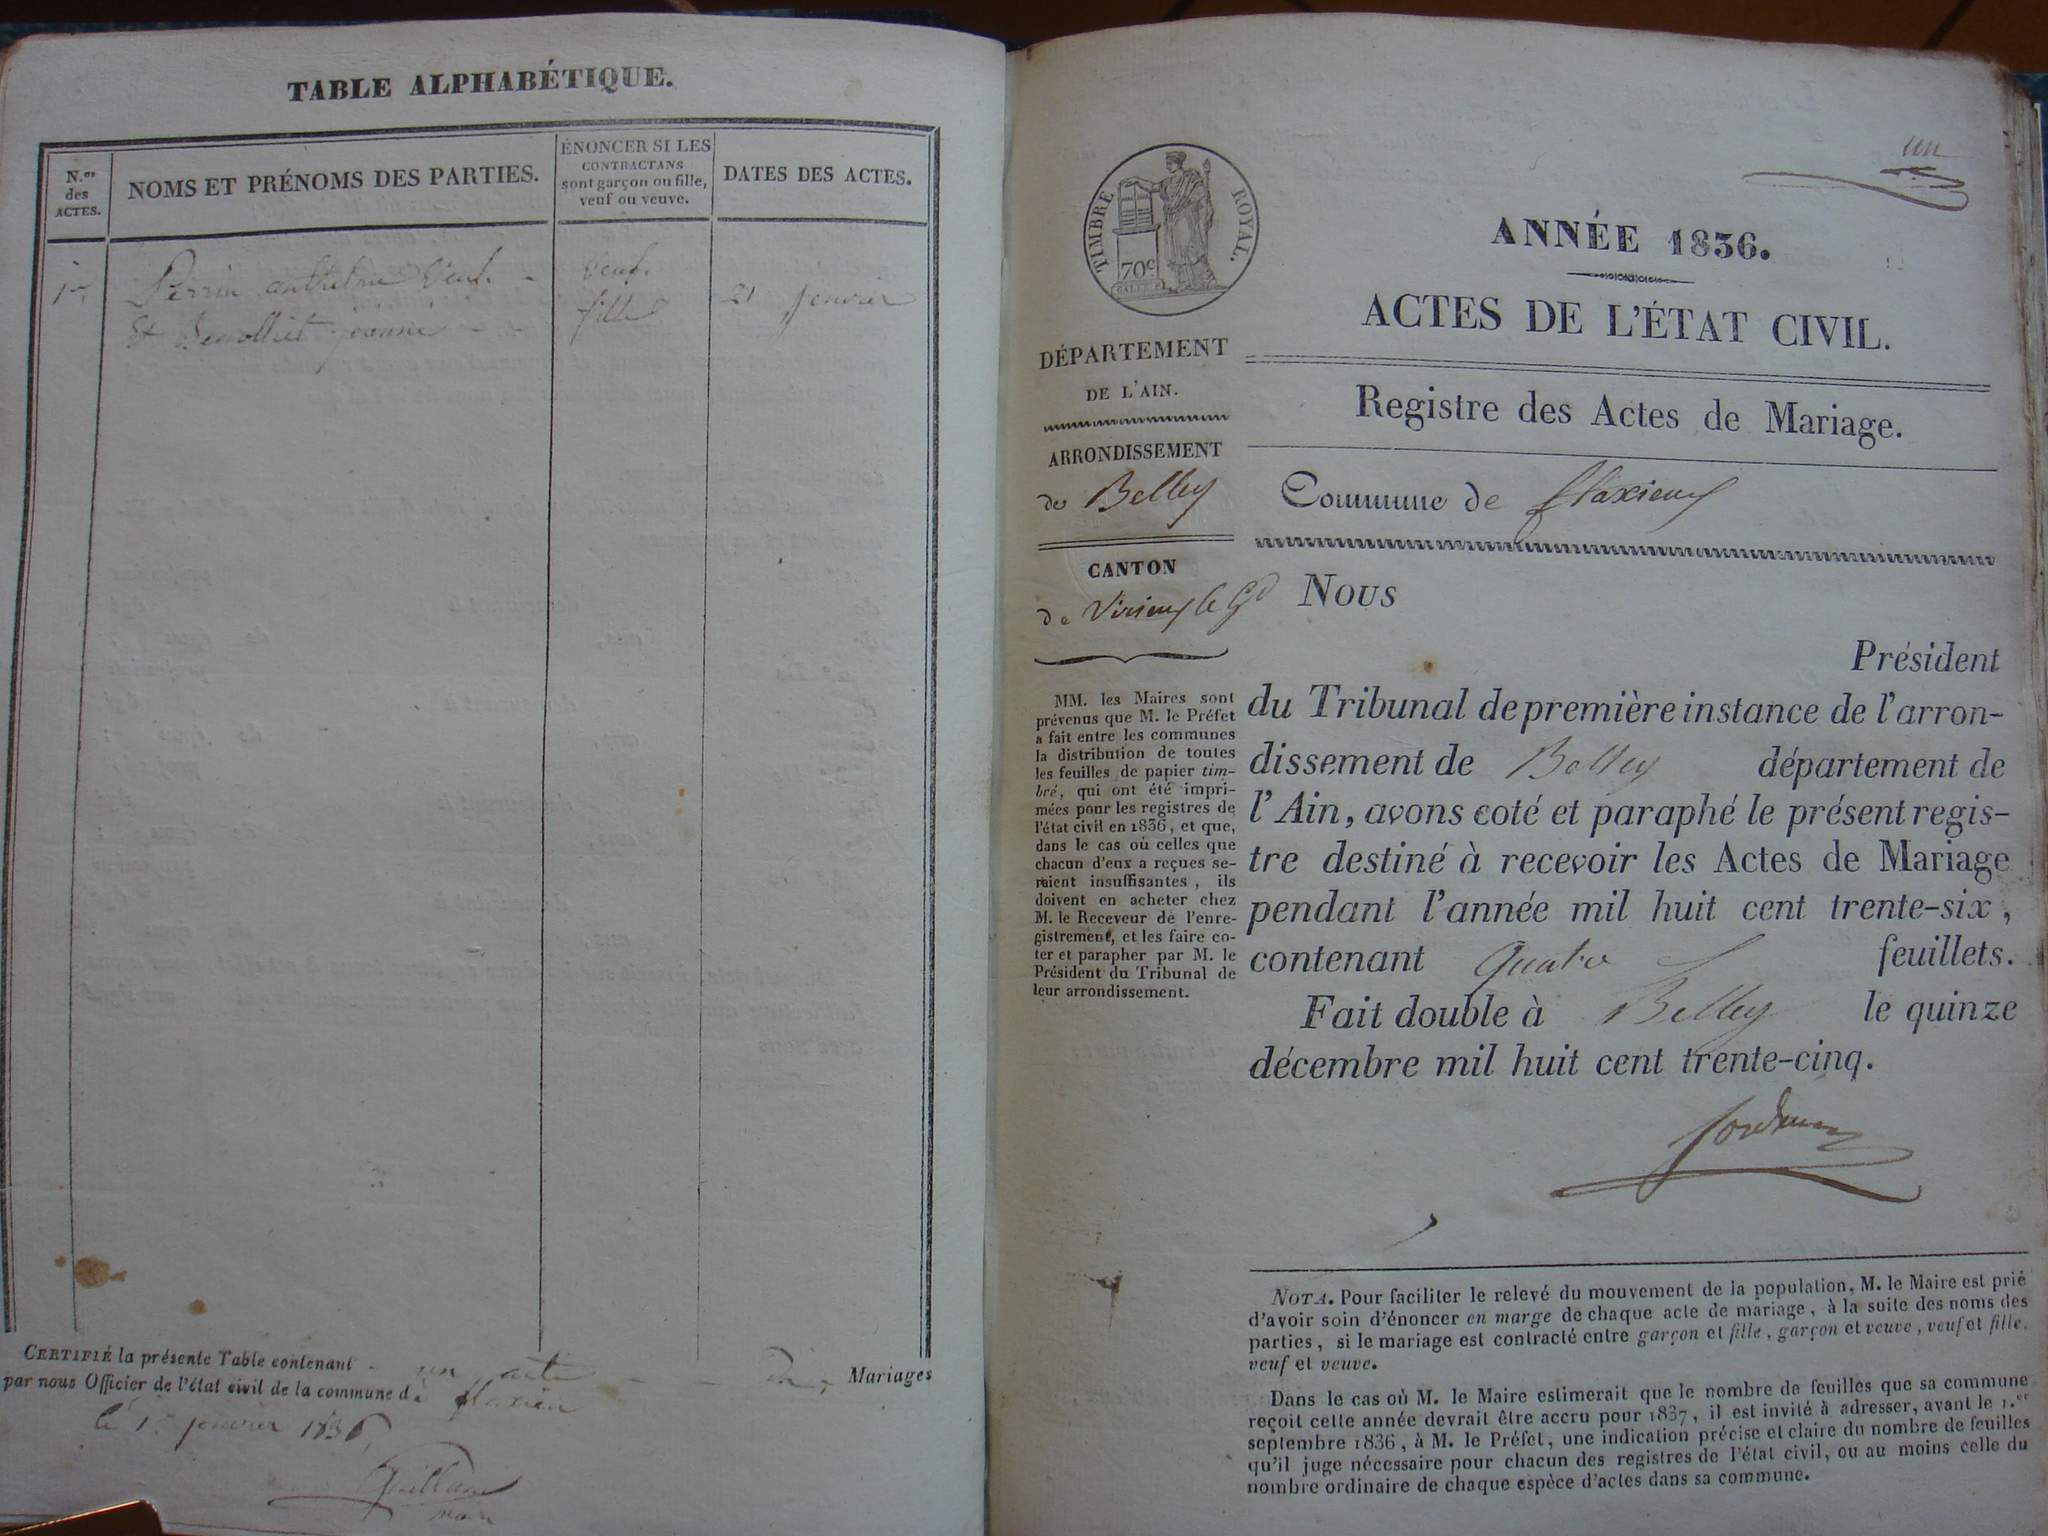 TABLE ALPHABÉTIQUE.
N.os des ACTES.
NOMS ET PRÉNOMS DES PARTIES.
ÉNONCER SI LES
CONTRACTANS
sont garçon ou fille,
veuf ou veuve.
DATES DES ACTES.
1er Perrin veuf.
Et jeanne fille 21 janvier
CERTIFIÉ la présente Table contenant un acte de Mariages
par nous Officier de l'état civil de la commune de flaxieu
le 1er janvier 1836
maire
un
TIMBRE ROYAL.
70c
ANNÉE 1836.
ACTES DE L'ÉTAT CIVIL.
Registre des Actes de Mariage.
Commune de flaxieux
DÉPARTEMENT
DE L'AIN.
ARRONDISSEMENT
de Belley
CANTON
de Virieux le Gd
MM. les Maires sont
prévenus que M. le Préfet
a fait entre les communes
la distribution de toutes
les feuilles de papier tim-
bré, qui ont été impri-
mées pour les registres de
l'état civil en 1836, et que,
dans le cas où celles que
chacun d'eux a reçues se-
raient insuffisantes, ils
doivent en acheter chez
M. le Receveur de l'enre-
gistrement, et les faire co-
ter et parapher par M. le
Président du Tribunal de
leur arrondissement.
NOUS
Président
du Tribunal de première instance de l'arron-
dissement de Belley département de
l'Ain, avons coté et paraphé le présent regis-
tre destiné à recevoir les Actes de Mariage
pendant l'année mil huit cent trente-six,
contenant Quatre feuillets.
Fait double à Belley le quinze
décembre mil huit cent trente-cinq.
NOTA. Pour faciliter le relevé du mouvement de la population, M. le Maire est prié
d'avoir soin d'énoncer en marge de chaque acte de mariage, à la suite des noms des
parties, si le mariage est contracté entre garçon et fille, garçon et veuve, veuf et fille,
veuf et veuve.
Dans le cas où M. le Maire estimerait que le nombre de feuilles que sa commune
reçoit cette année devrait être accru pour 1837, il est invité à adresser, avant le 1.er
septembre 1836, à M. le Préfet, une indication précise et claire du nombre de feuilles
qu'il juge nécessaire pour chacun des registres de l'état civil, ou au moins celle du
nombre ordinaire de chaque espèce d'actes dans sa commune.